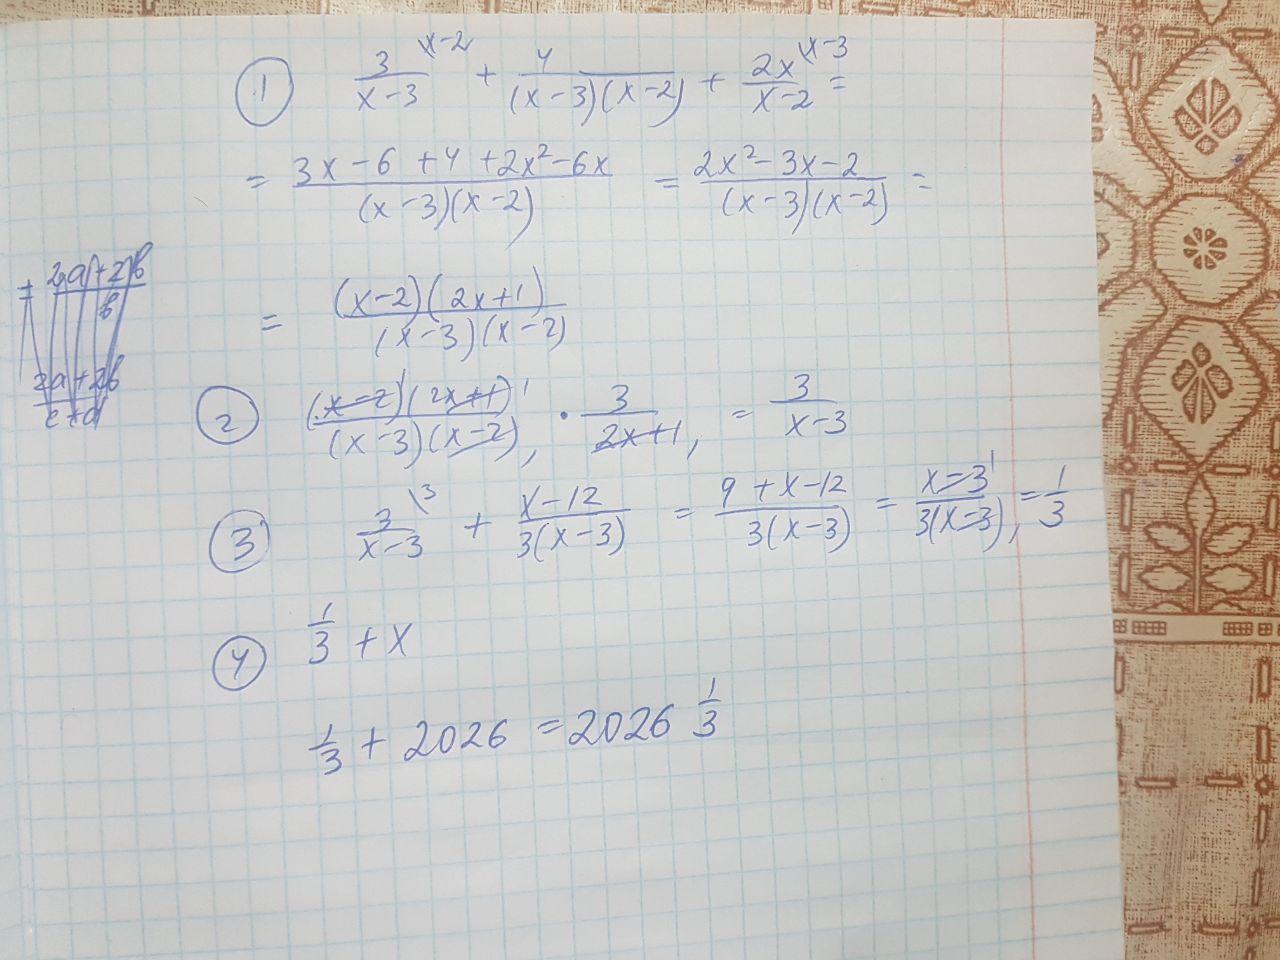 ① 3/(x-3) \x-2 + 4/((x-3)(x-2)) + 2x/(x-2) \x-3 =
= (3x-6+4+2x²-6x)/((x-3)(x-2)) = (2x²-3x-2)/((x-3)(x-2)) =
= ((x-2)(2x+1))/((x-3)(x-2))
② ((x-2)¹(2x+1)¹)/((x-3)(x-2)₁) · 3/(2x+1)₁ = 3/(x-3)
③ 3/(x-3) \3 + (x-12)/(3(x-3)) = (9+x-12)/(3(x-3)) = (x-3)¹/(3(x-3)₁) = 1/3
④ 1/3 + x
1/3 + 2026 = 2026 1/3